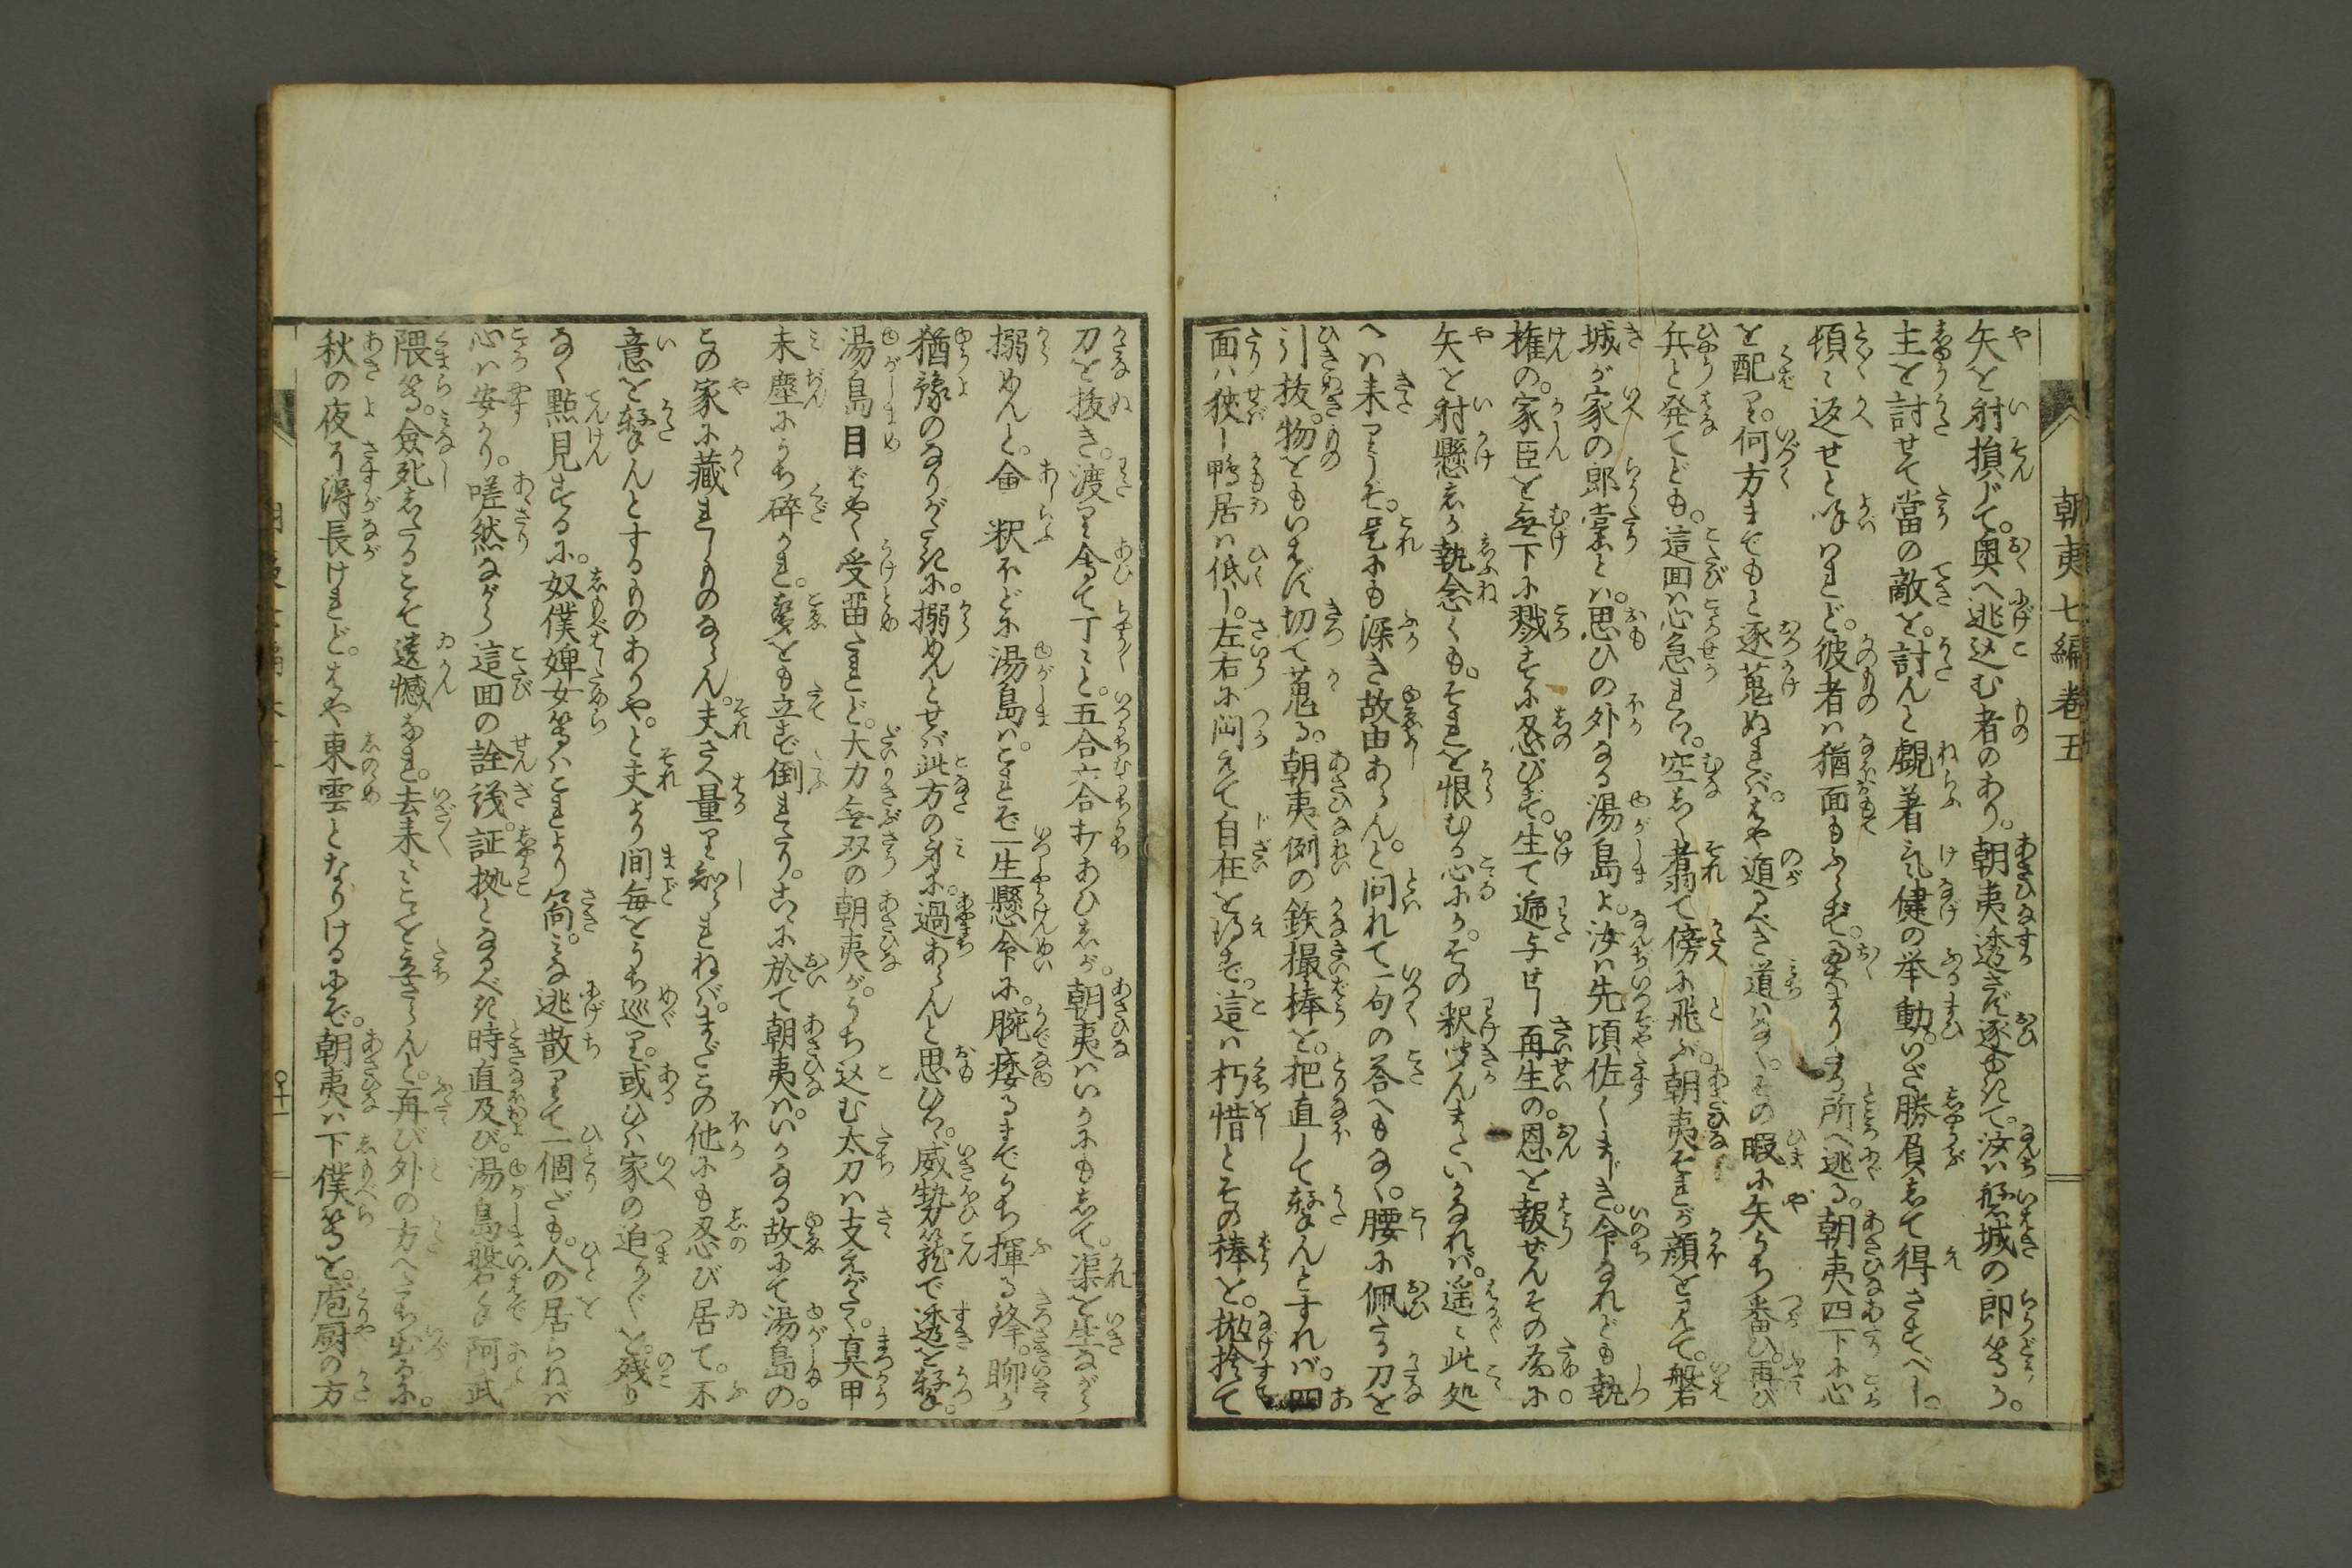 朝夷七編巻五
矢を射損じて。奥へ逃込む者のあり。朝夷透さず逐もて。汝ハ磐城の郎等か。
主を討せて當の敵を。討んと覷着気健の挙動。いざ勝負して得さすべし。
頃々返せと呼はれど。彼者ハ猶面もふらず。奥まりたる所へ逃る。朝夷四下に心
を配り。何方までもと逐蒐ぬれバ。はや遁るべき道ハなく。その暇に矢うち番ひ。再び
兵と発てども。這回ハ心急れけん。空しく翥て傍に飛ぶ。朝夷それが顔を見て。磐
城が家の郎党とハ。思ひの外なる湯島よ。汝ハ先頃佐くまじき。命なれども執
権の。家臣を無下に戮すに忍びず。生て遞与せし再生の。恩を報ぜんその為に。
矢を射懸しか執念くも。それを恨むる心にか。その釈聞んまたいかなれバ。遥々此処
へハ来りしぞ。是にも深き故由あらん。と問れて一句の答へもなく。腰に佩たる刀を
引抜。物をもいはず切て蒐る。朝夷例の鉄撮棒を。把直して撃んとすれバ。四
面ハ狭し鴨居ハ低し。左右に閊えて自在を得ず。這ハ朽惜とその棒を。抛捨て
刀を抜き。渡り合て丁々と。五合六合打あひしが。朝夷ハいかにもして。渠を生ながら
搦めんと。会釈ほどに湯島ハ。これぞ一生懸命に。腕痿るまでうち揮る鋒。聊か
猶豫のなりがたきに。搦めんとせバ此方の身に。過あらんと思ひつゝ。威勢籠で透を撃を。
湯島目ばやく受畄たれど。大力無双の朝夷が。うち込む太刀ハ支えがたく。真甲
未塵にうち碎かれ。聲をも立ず倒れたり。ここに於て朝夷ハ。いかなる故にて湯島の。
この家に藏れしものならん。夫さへ量り知られねバ。まだこの他にも忍び居て。不
意を撃んとするものありや。と夫より間毎をうち巡り。或ひハ家の迫々を。残り
なく點見するに。奴僕婢女等ハこれより前。みな逃散りて一個だも。人の居らねバ
心ハ安かり。嗟然ながら這回の詮議。証拠となるべき時直及び。湯島磐手阿武
隈等。僉死したるこそ遺憾なれ。去来々こゝを立さらんと。再び外の方へたち出るに。
秋の夜に得長けれど。はや東雲となりけるにぞ。朝夷ハ下僕等を。庖厨の方